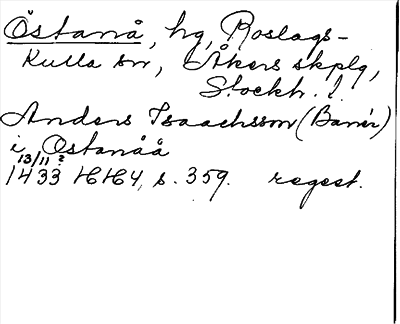 Östanå, hg, Roslags-
Kulla sn, Åkers skplg,
Stockh. l.
Anders Isaachsson (Banér)
i Östanåå
13/11 ?
1433 HH4, s. 359. regest.